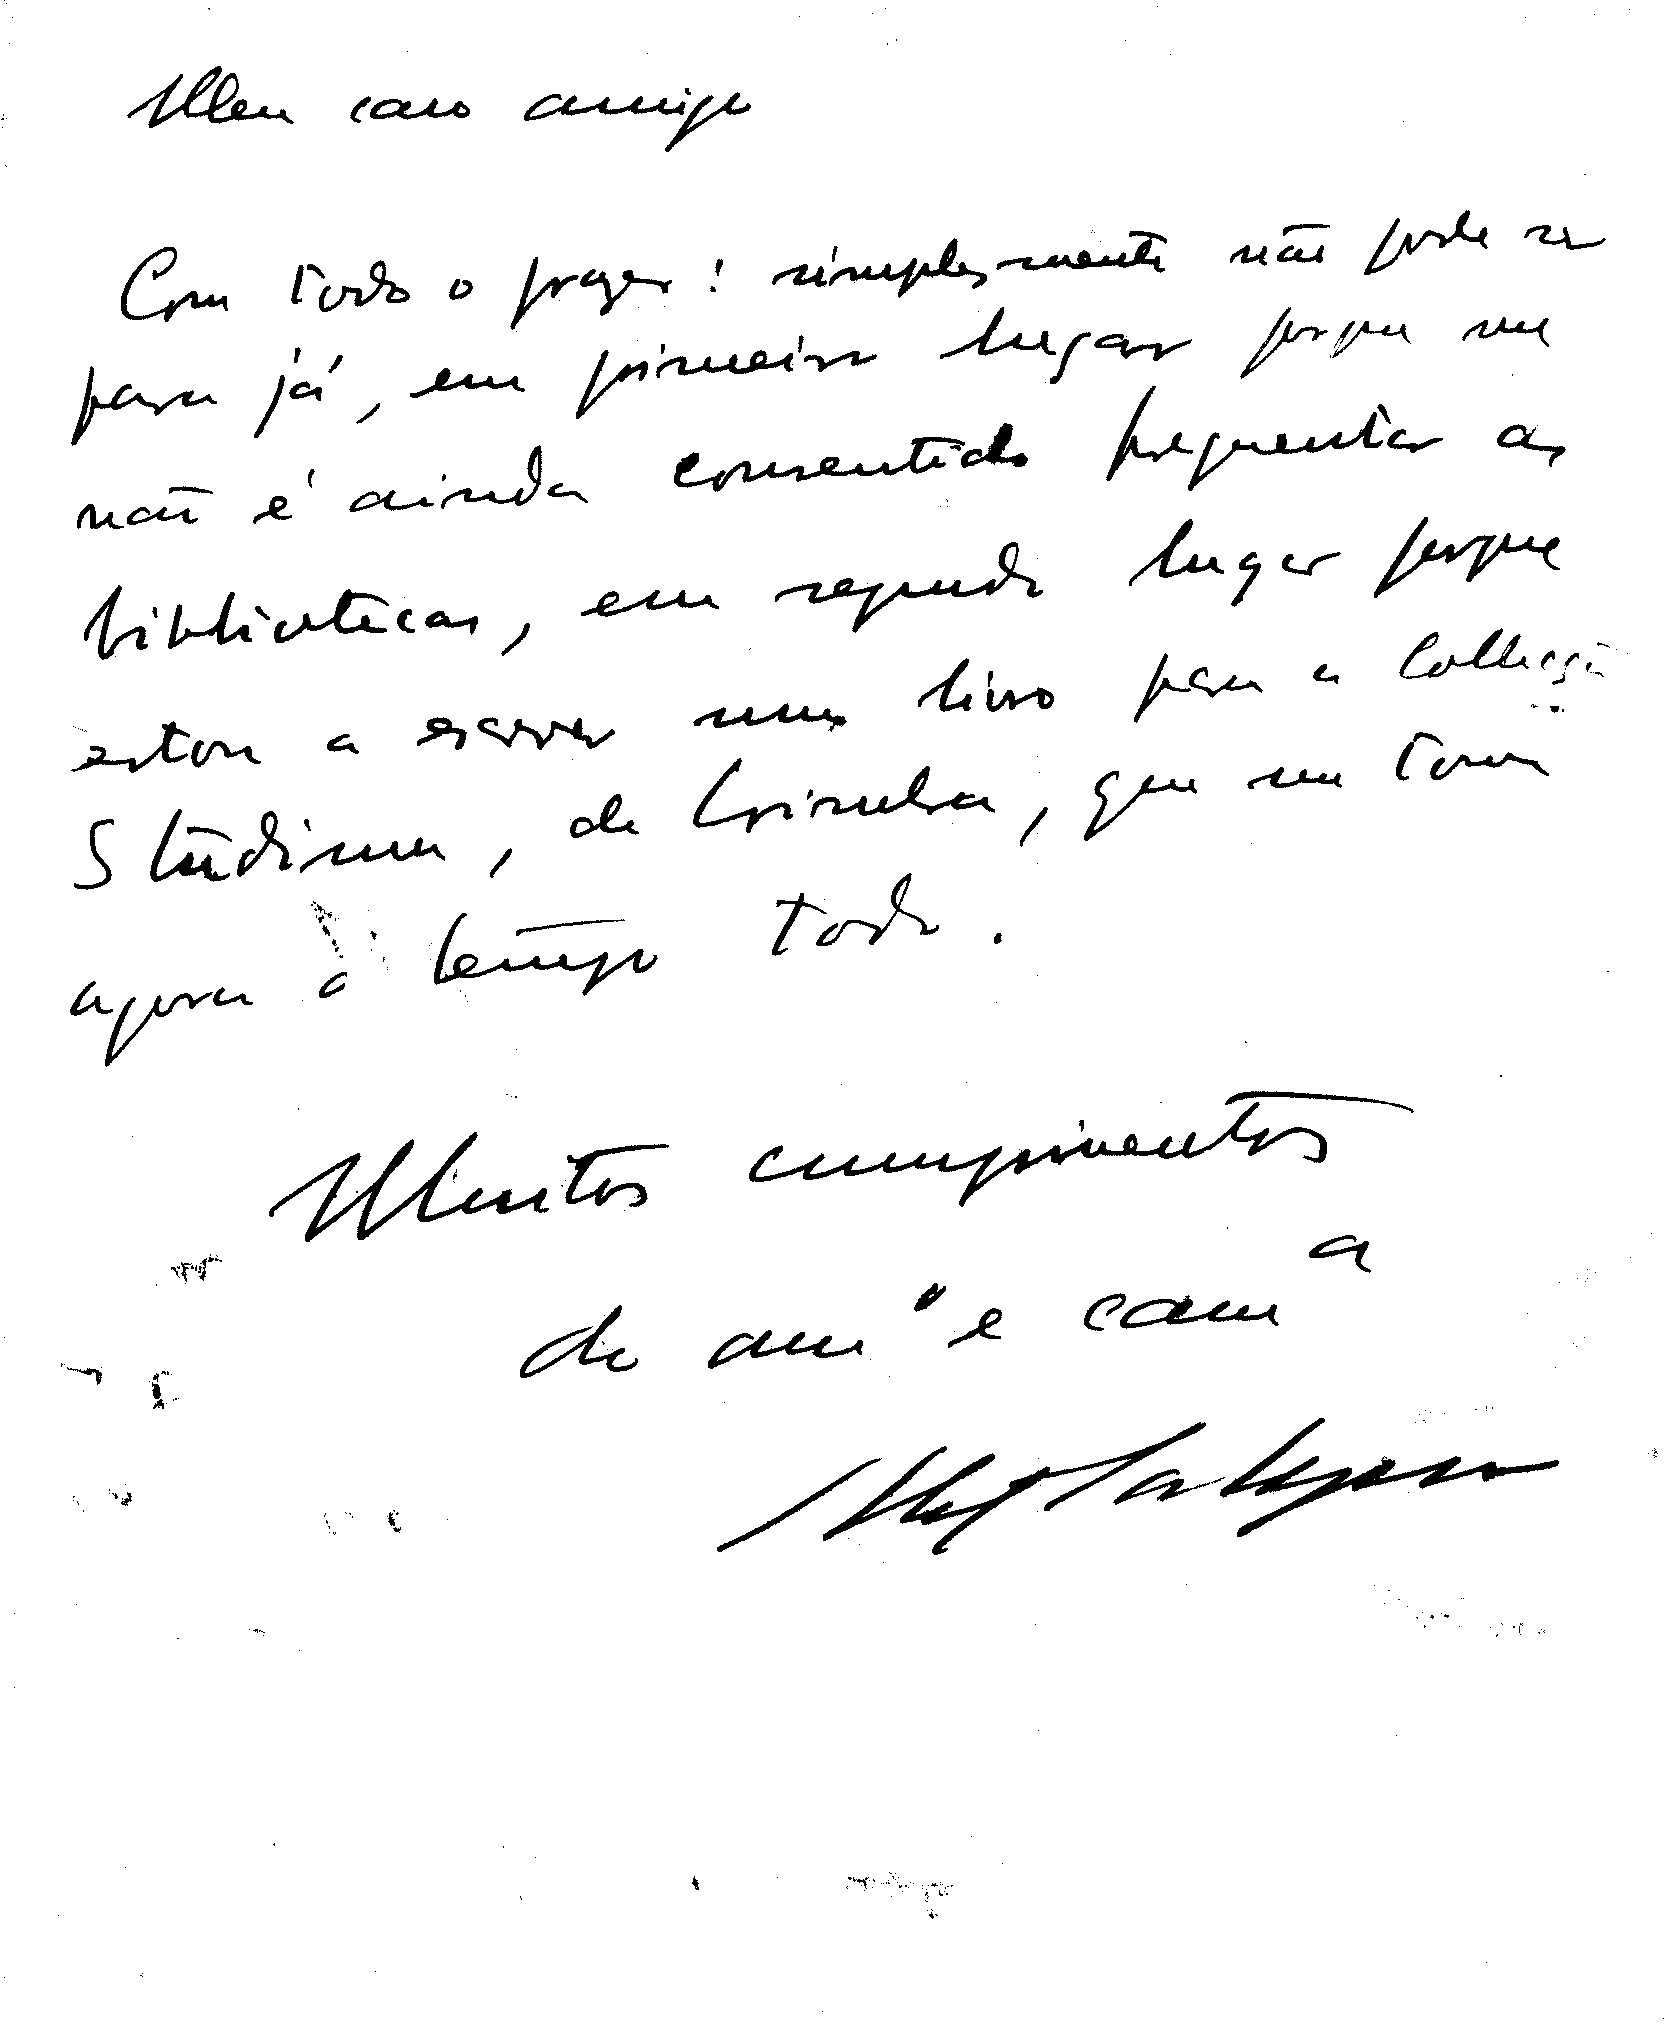 Meu caro amigo
Com todo o prazer! simplesmente não pode ser
para já, em primeiro lugar porque me
não é ainda consentido frequentar as
bibliotecas, em segundo lugar porque
estou a escrever um livro para a Collecção
Studium, de Coimbra, que me toma
agora o tempo todo.
Muitos cumprimentos
do am° e cam^a